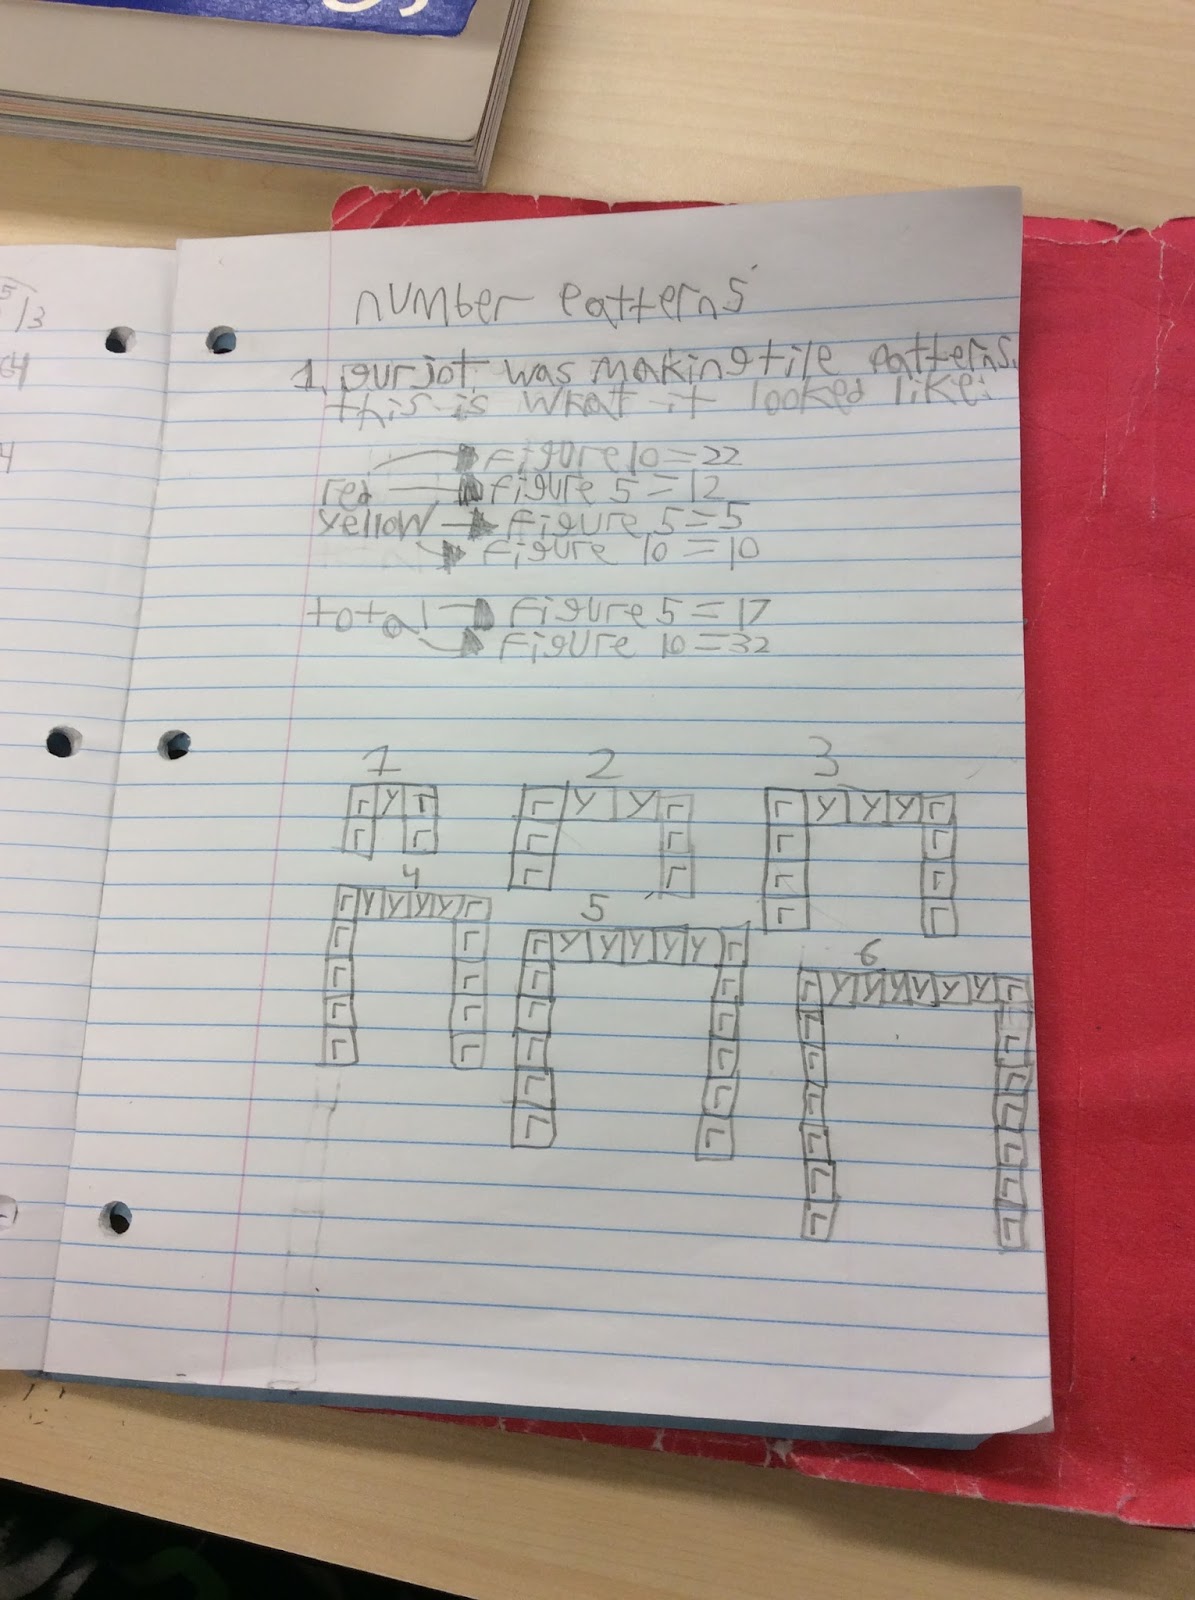 number patterns
1. gurjot was making tile patterns.
this is what it looked like:
figure 10 = 22
red figure 5 = 12
yellow figure 5 = 5
figure 10 = 10
total figure 5 = 17
figure 10 = 32
1 2 3
r y r r y y r r y y y r
r r r r r r
r r r r
r r
4 5 6
r y y y y r r y y y y y r r y y y y y y r
r r r r r r
r r r r r r
r r r r r r
r r r r r r
r r r r
r r